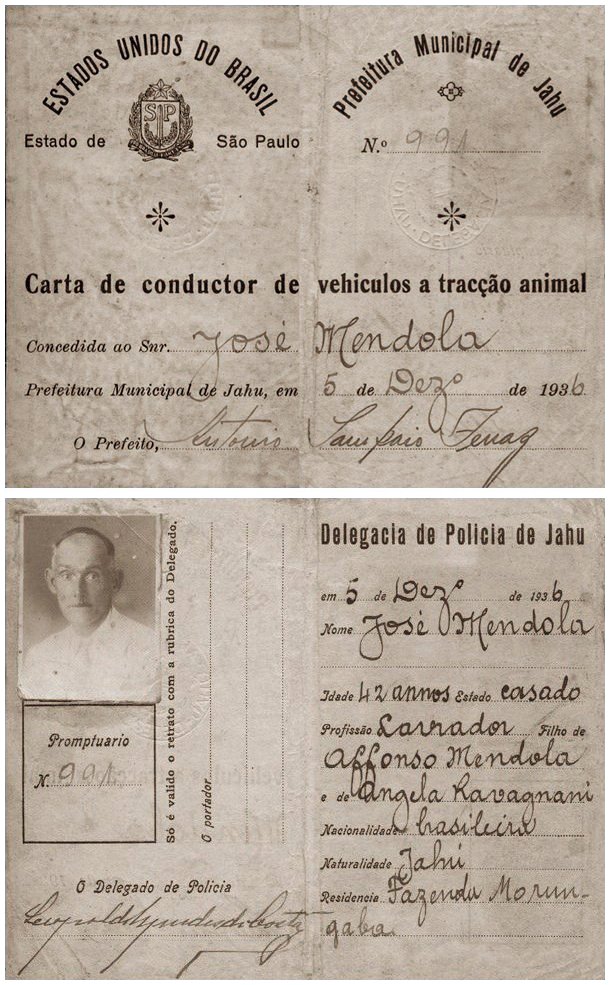 ESTADOS UNIDOS DO BRASIL
Estado de São Paulo
SP
Prefeitura Municipal de Jahu
N.º 991
Carta de conductor de vehiculos a tracção animal
Concedida ao Snr. José Mendola
Prefeitura Municipal de Jahu, em 5 de Dezº de 1936
O Prefeito, Antonio Sampaio
Promptuario
N. 991
Só é valido o retrato com a rubrica do Delegado.
O portador
O Delegado de Policia
Delegacia de Policia de Jahu
em 5 de Dezº de 1936
Nome José Mendola
Idade 42 annos Estado casado
Profissão Lavrador Filho de
Affonso Mendola
e de Angela Ravagnani
Nacionalidade brasileira
Naturalidade Jahú
Residencia Fazenda Morun-
gaba